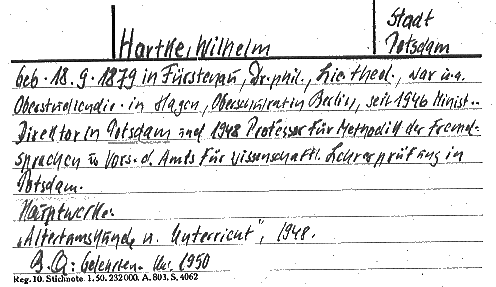 Stadt
Hartke, Wilhelm
Potsdam
geb. 18.9.1879 in Fürstenau, Dr. phil., Lic. theol., war u.a.
Oberstudiendir. in Hagen, Oberschulrat in Berlin, seit 1946 Minist.-
Direktor in Potsdam und 1948 Professor für Methodik der Fremd-
sprachen u. Vors. d. Amts für wissenschaftl. Lehrerprüfung in
Potsdam.
Hauptwerke:
„Altertumskunde u. Unterricht", 1948.
Gelehrten- 1950
Reg. 10. Stichnote. 1. 50. 232000. A. 803, S. 4062